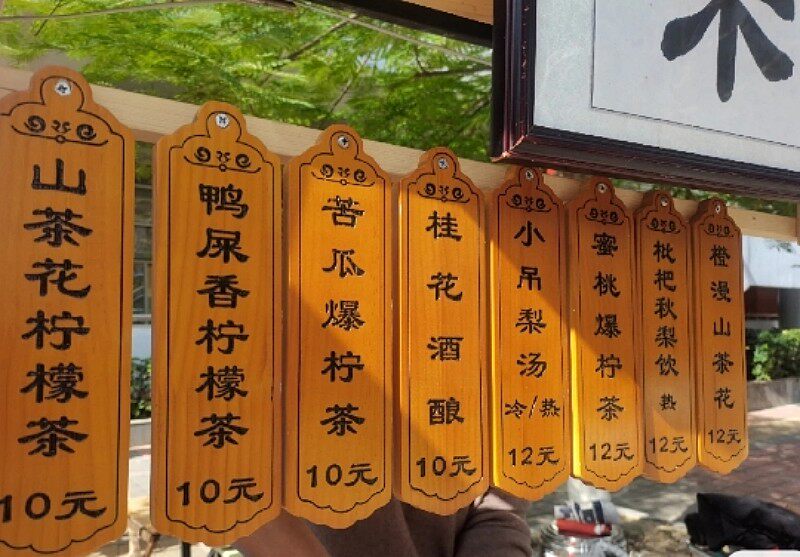 山茶花柠檬茶
10元
鸭屎香柠檬茶
10元
苦瓜爆柠茶
10元
桂花酒酿
10元
小吊梨汤
冷/热
12元
蜜桃爆柠茶
12元
枇杷秋梨饮
热
12元
橙漫山茶花
12元